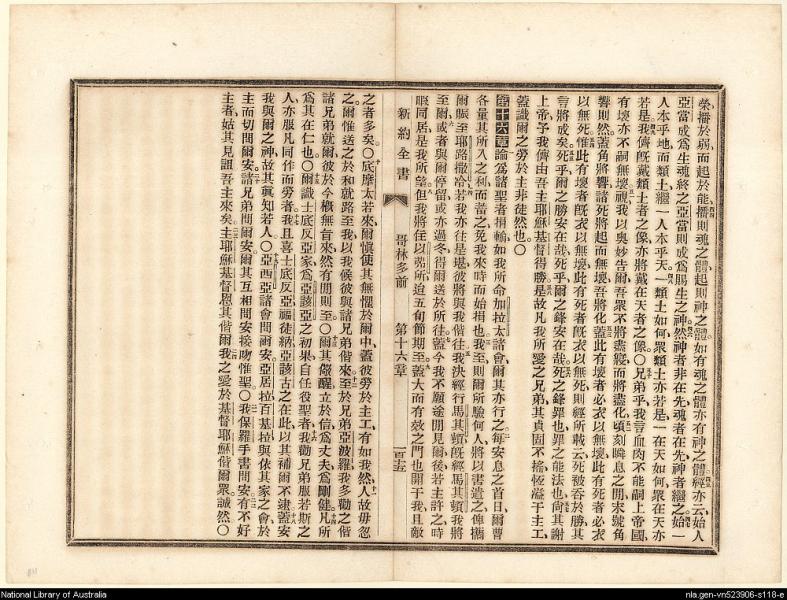 榮播於弱而起於能播則魂之體起則神之體如有魂之體亦有神之體經亦云始人
亞當成爲生魂終之亞當則成爲賜生之神然神者非在先魂者在先神者繼之始一
人本乎地而類土繼一人本乎天一類土如何衆類土亦若是一在天如何衆在天亦
若是我儕旣戴類土者之像亦將戴在天者之像○兄弟乎我言血肉不能嗣上帝國
有壞亦不嗣無壞視我以奧妙告爾吾衆不將盡寢而將盡化頃刻瞬息之間末號角
響則然蓋角將響諸死將起而無壞吾將化蓋此有壞者必衣以無壞此有死者必衣
以無死惟此有壞者旣衣以無壞此有死者旣衣以無死則經所載云死被吞於勝其
言將成矣死乎爾之勝安在哉死乎爾之鋒安在哉死之鋒罪也罪之能法也尙其謝
上帝予我儕由吾主耶穌基督得勝是故凡我所愛之兄弟其貞固不搖恆溢于主工
蓋識爾之勞於主非徒然也○
第十六章論爲諸聖者捐輸如我所命加拉太諸會爾其亦行之每安息之首日爾曹
各量其所入之利而蓄之免我來時而始捐也我至則爾所驗何人將以書遣之俾攜
爾賬至耶路撒冷若我亦往是堪彼將與我偕往我決經行馬其頓旣經馬其頓我將
至爾或者與爾停留或亦過冬得爾送於所往蓋今我不願途間見爾後若主許之時
眼同居是我所望但我將住以弗所迨五旬節期至蓋大而有效之門也開于我且敵
新約全書 哥林多前 第十六章
之者多矣○底摩太若來爾愼使其無懼於爾中蓋彼勞於主工有如我然人故毋忽
之爾惟送之於和就路至我以我候彼與諸兄弟偕來至於兄弟亞波羅我多勸之偕
諸兄弟就爾彼於今槪無肯來然有閒則至○爾其儆醒立於信爲丈夫爲剛健凡所
爲其在仁也○爾識士底反亞家爲亞該亞之初果自任役聖者我勸兄弟服若斯之
人亦服凡同作而勞者我且喜士底反亞福徒納亞該古之在此以其補爾不逮蓋安
我與爾之神故其眞知若人○亞西亞諸會問爾安亞居拉百基拉與依其家之會於
主而切問爾安諸兄弟問爾安爾其互相問安接吻惟聖○我保羅手書問安有不好
主者姑其見詛吾主來矣主耶穌基督恩其偕爾我之愛於基督耶穌偕爾衆誠然○
National Library of Australia
nla.gen-vn523906-s118-e